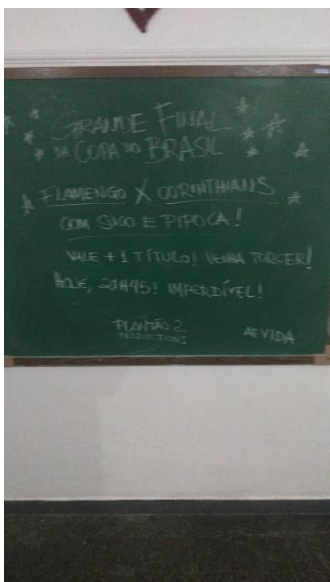 GRANDE FINAL
DA COPA DO BRASIL
FLAMENGO X CORINTHIANS
COM SUCO E PIPOCA!
VALE + 1 TÍTULO! VENHA TORCER!
HOJE, 21H45! IMPERDÍVEL!
PLANTÃO 2
PRODUCTIONS
AEVIDA